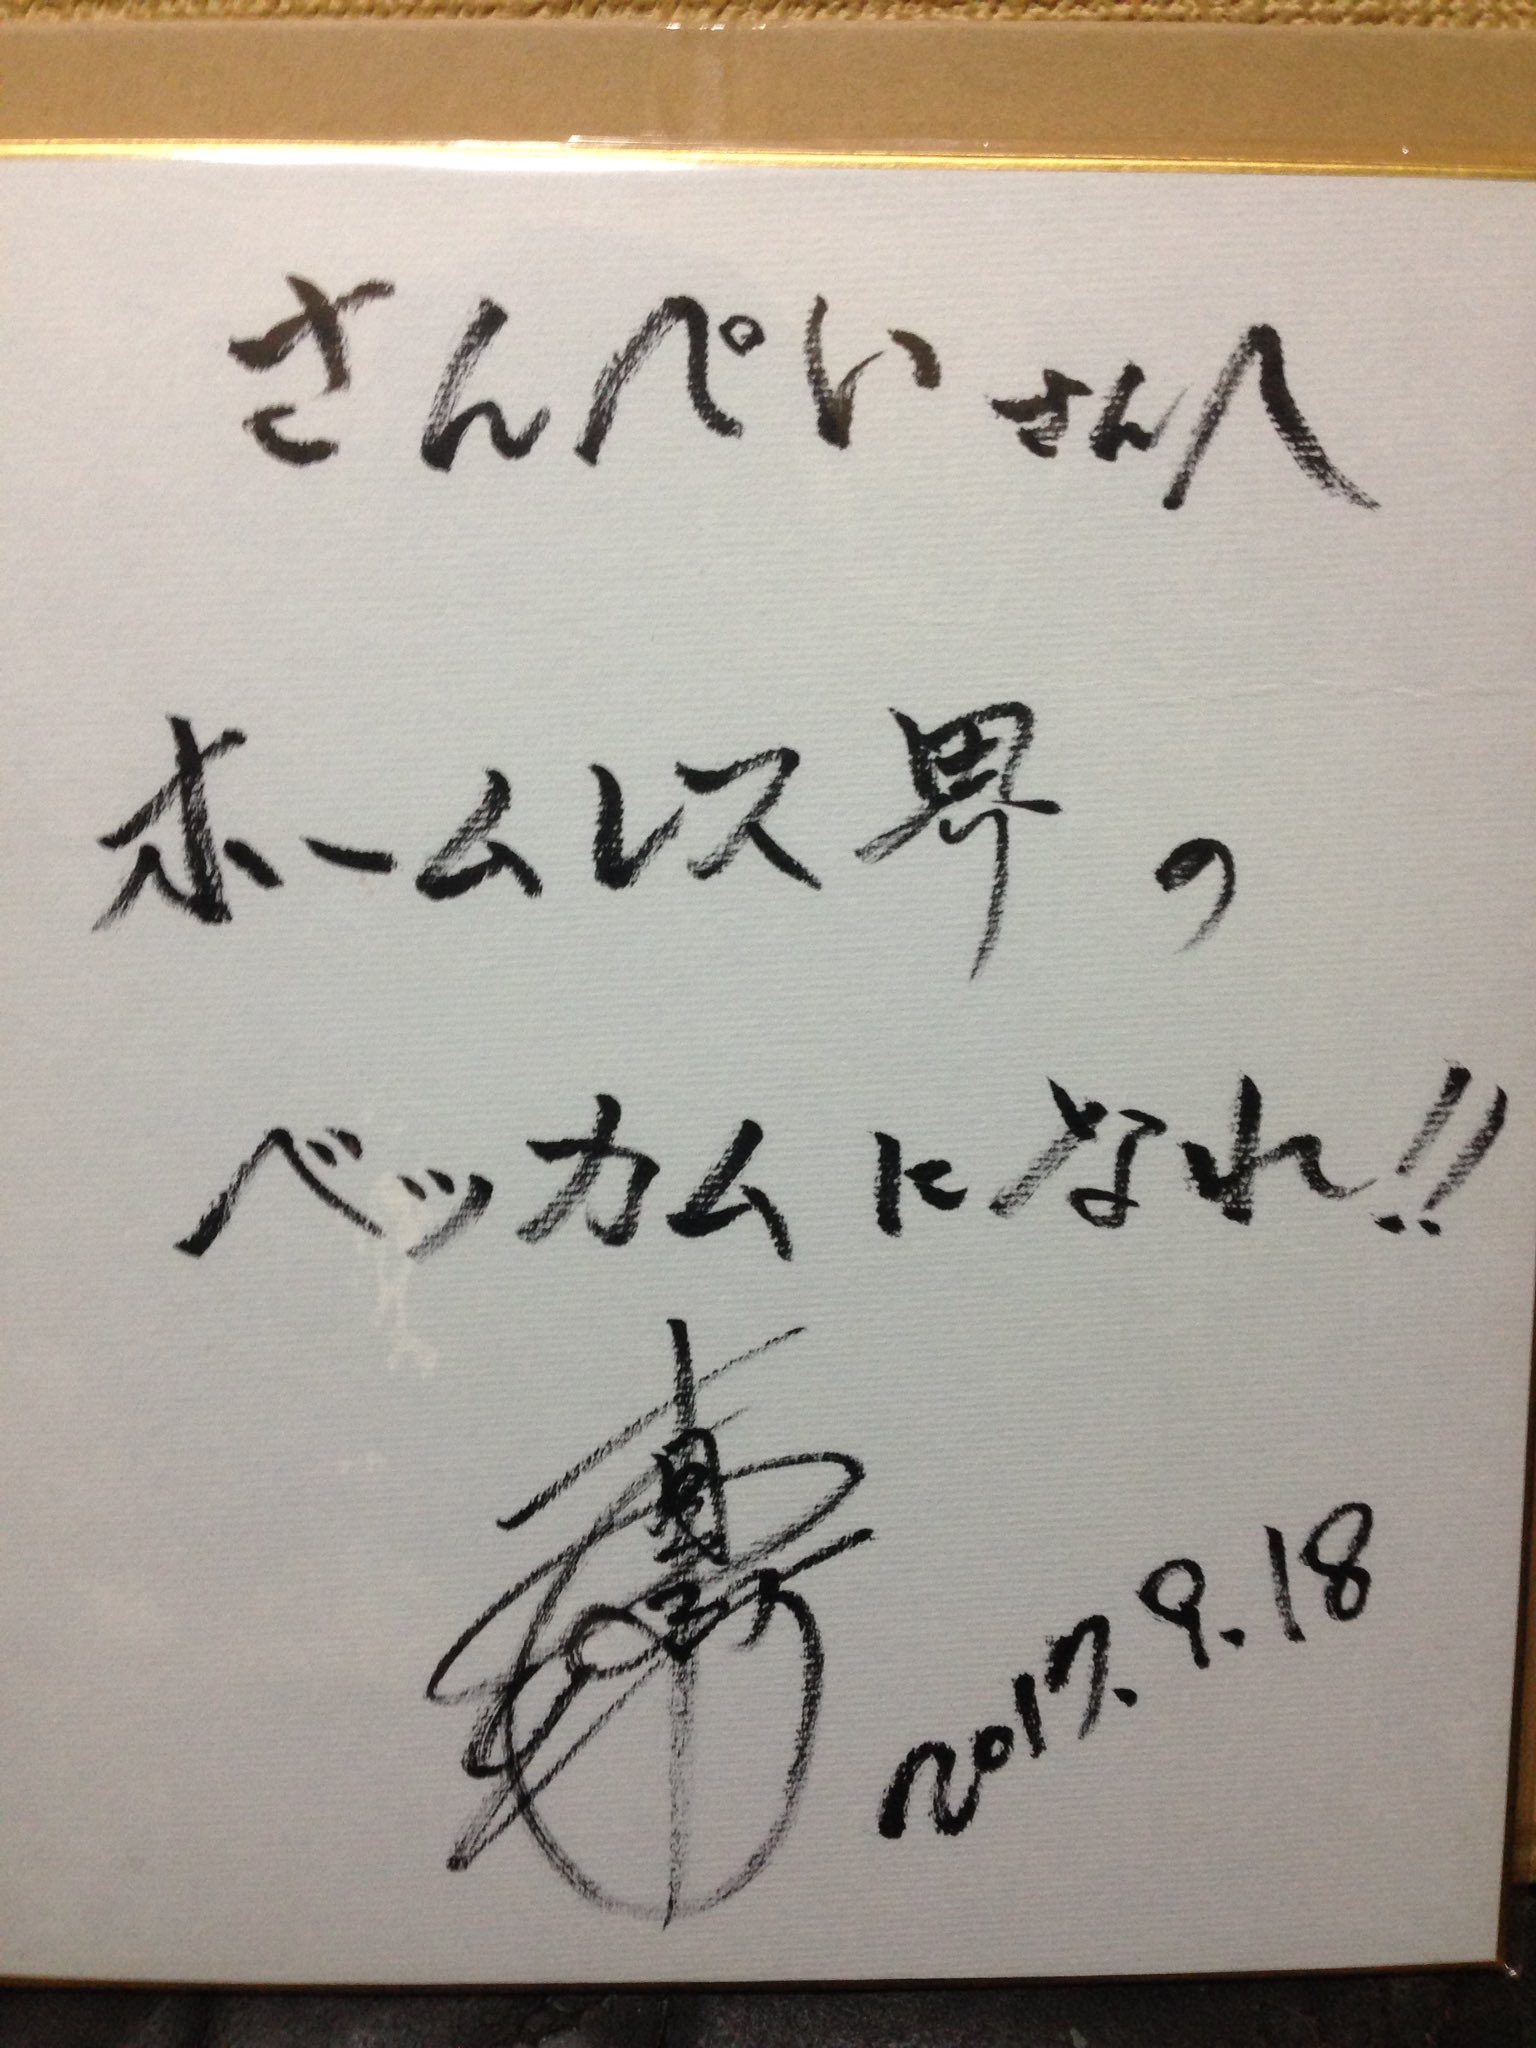 さんぺいさんへ
ホームレス界の
ベッカムになれ!!
2017.9.18